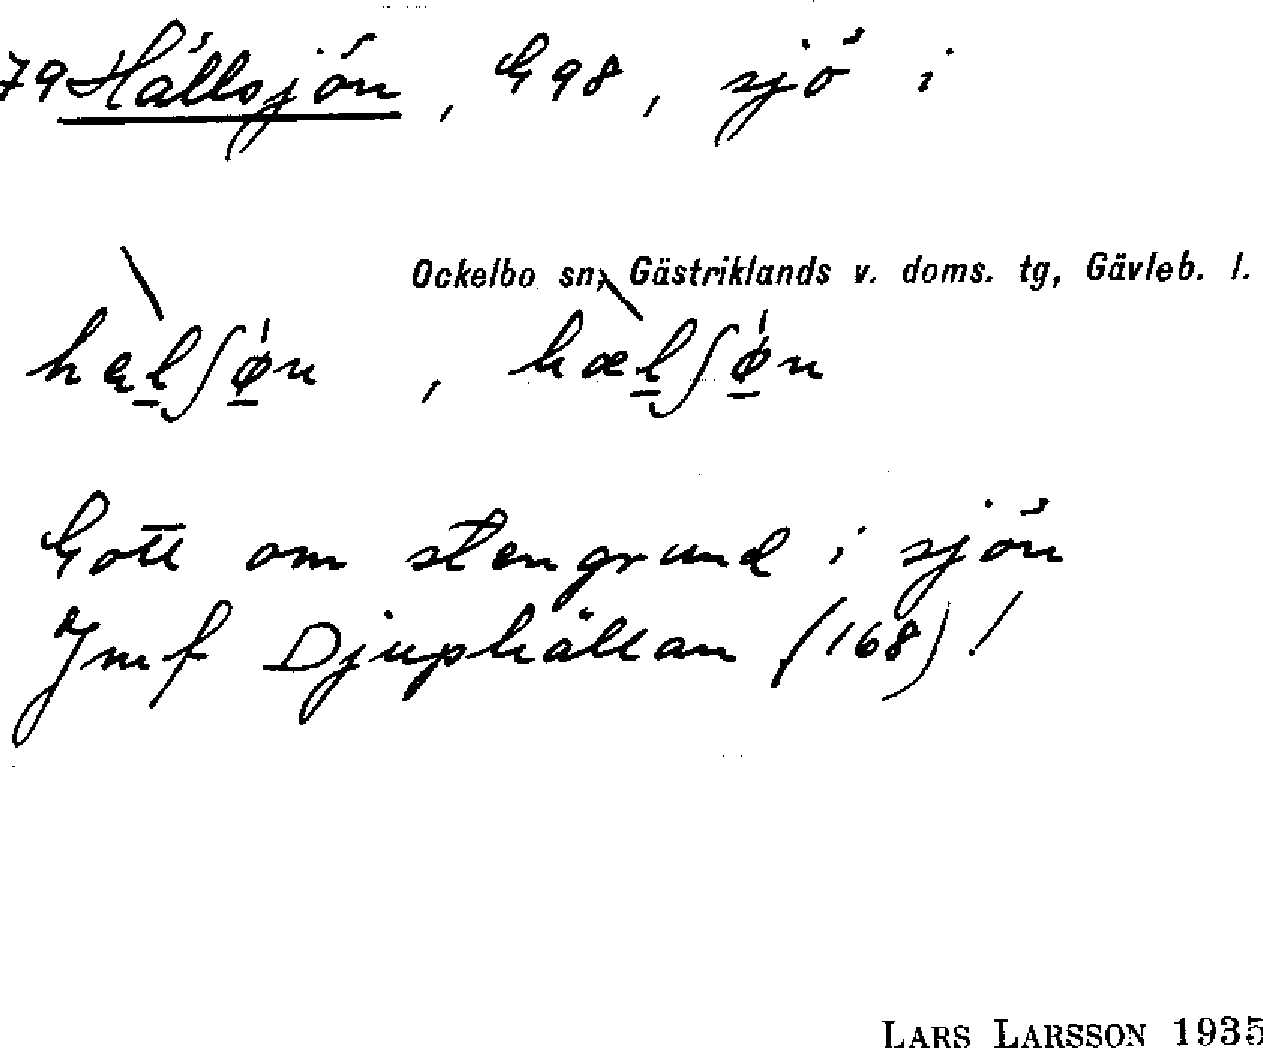 79 Hällsjön, G98, sjö i
Ockelbo sn, Gästriklands v. doms. tg, Gävleb. l.
hælʃøn, hælʃøn
Gott om stengrund i sjön
Jmf Djuphällan (168)!
LARS LARSSON 1935